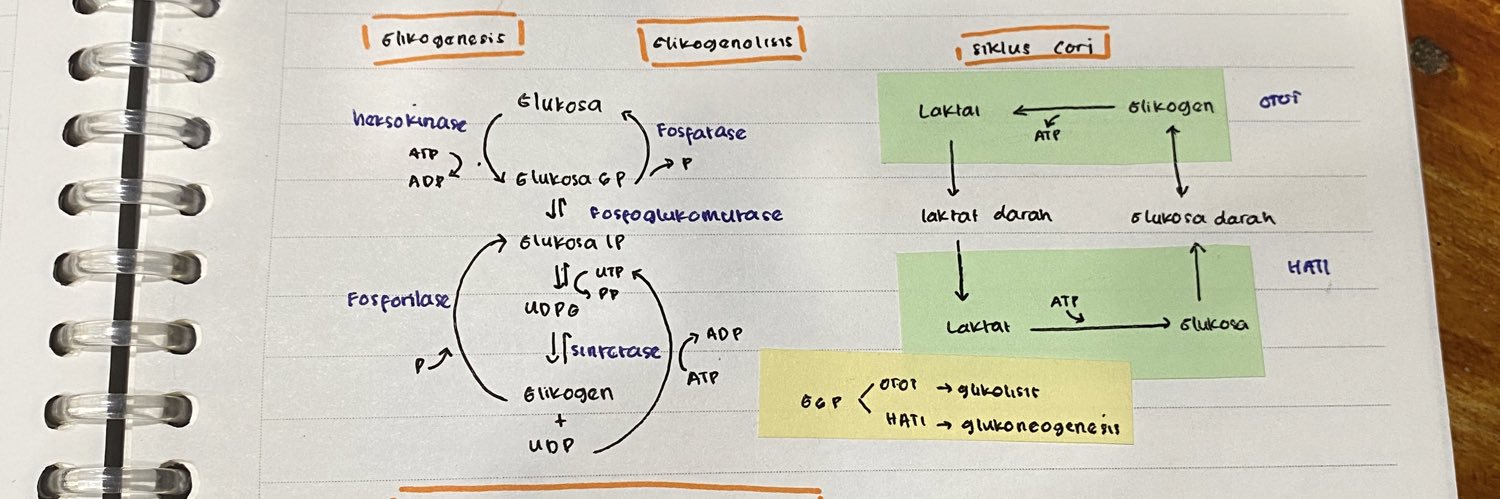 Glikogenesis
Glikogenolisis
siklus cori
Glukosa
heksokinase
ATP
ADP
Fosfatase
P
Glukosa 6P
Fosfoglukomutase
Glukosa 1P
UTP
PP
UDPG
Fosforilase
sintetase
P
ADP
ATP
Glikogen
+
UDP
Laktat
Glikogen
OTOT
ATP
laktat darah
Glukosa darah
HATI
ATP
Laktat
Glukosa
G6P
OTOT → glikolisis
HATI → glukoneogenesis